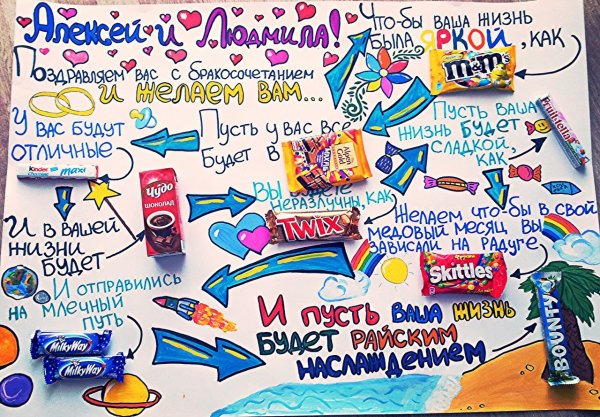 Алексей и Людмила!
Поздравляем вас с бракосочетанием
и желаем вам...
Что-бы ваша жизнь
была яркой, как
m&m's
Пусть ваша
жизнь будет
сладкой,
как
Fruittella
Желаем что-бы в свой
медовый месяц вы
зависали на радуге
Skittles
Вы
неразлучны, как
TWIX
Пусть у вас все
будет в
Alpen Gold
У вас будут
отличные
Kinder
maxi
И в вашей
жизни
будет
Чудо
шоколад
И отправились
на млечный
путь
MilkyWay
MilkyWay
И пусть ваша жизнь
будет райским
наслаждением
BOUNTY